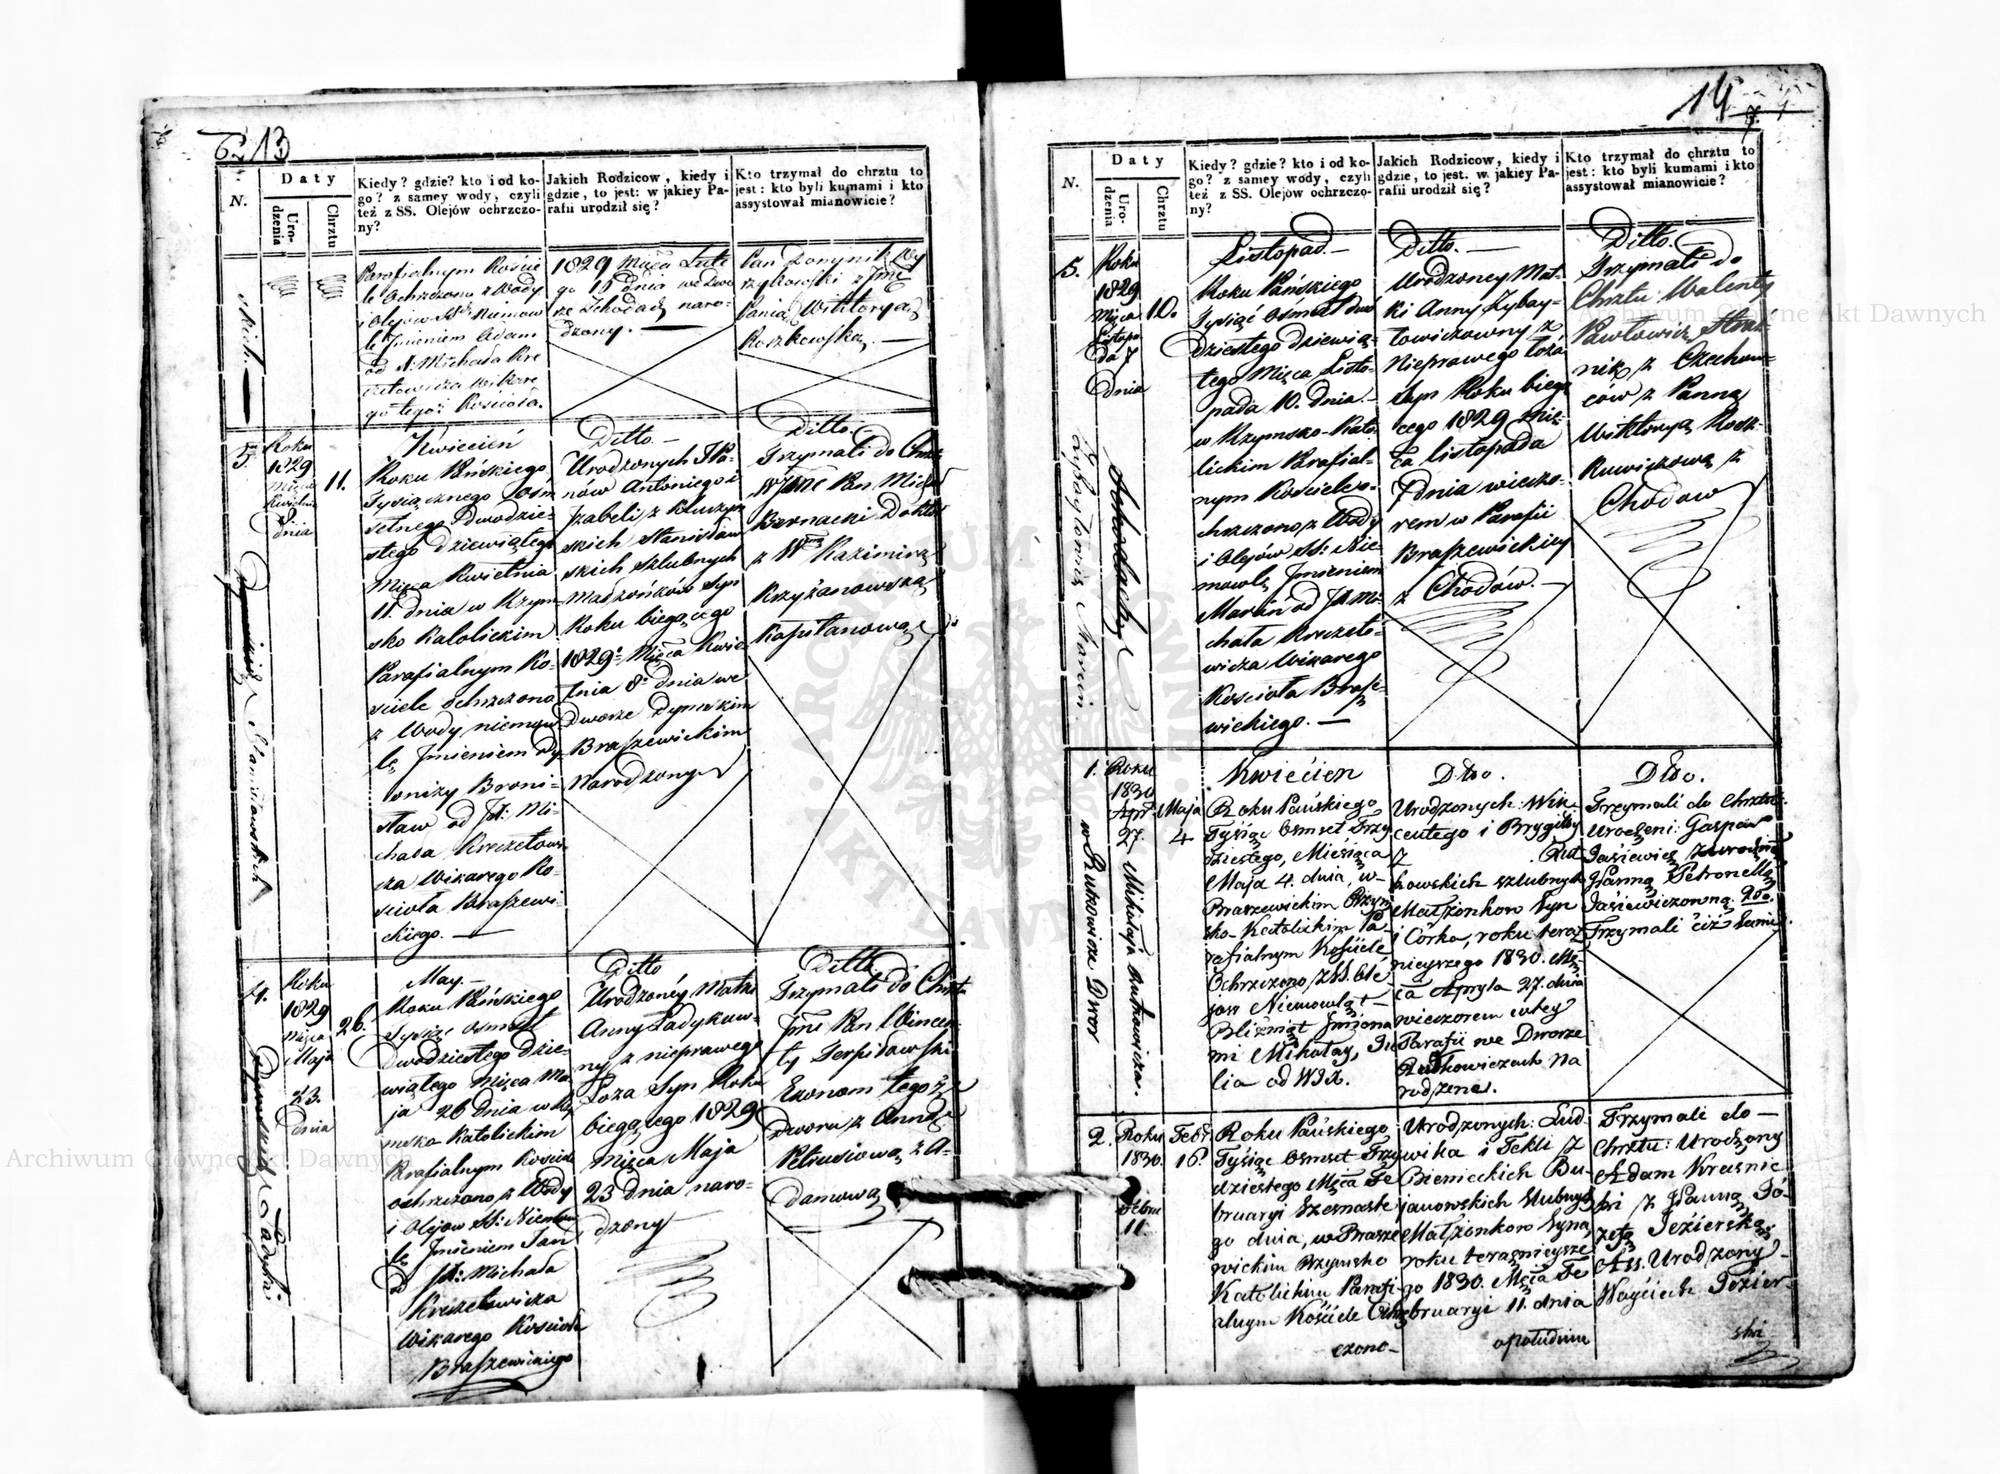 13
N.
Daty
Uro-
dzenia
Chrztu
Kiedy? gdzie? kto i od ko-
go? z samey wody, czyli
też z SS. Olejów ochrzczo-
ny?
Jakich Rodzicow, kiedy i
gdzie, to jest: w jakiey Pa-
rafii urodził się?
Kto trzymał do chrztu to
jest: kto byli kumami i kto
assystował mianowicie?
Parafialnym Kościе
le Ochrzczono z Wody
i Olejów SS. Niemow
le Jmieniem Adam
od X. Michała Kre
czetowicza Wikare
go tegoż Kościoła.
1829 Mięca Lute
go 10 Dnia we Dwo
rze naro-
dzony.
Pan
rzykowski z Jmć
Panią Wiktoryą
Roszkowską.
Roku
1829
Mięca
Kwietnia
8
dnia
11.
Kwiecień
Roku Pańskiego
Tysiącznego Ośm
setnego dwudzie-
stego dziewiątego
Mięca Kwietnia
11. dnia w Rzym-
sko Katolickim
Parafialnym Ko-
ściele ochrzczono
z Wody niemow
lę Jmieniem Dy-
onizy Broni-
sław od Mi-
chała Kreczetowi-
cza Wikarego Ko-
ścioła Braszewi-
ckiego.
Ditto.
Urodzonych JPa-
nów Antoniego i
Jzabeli z Kluczyn
skich Stanisław
skich szlubnych
Małżonków Syn
Roku biegącego
1829 Mięca Kwie-
tnia 8 dnia we
Dworze Dymskim
Braszewickim
Narodzony
Ditto.
Trzymali do Chrz
WJmć Pan Michał
Barnacki Doktor
z Wną Kazimirą
Krzyżanowską
Kapitanową
Stanisławskich
4.
Roku
1829
Mięca
Maja
23.
dnia
26.
May.
Roku Pańskiego
Tysiąc ośmset
Dwudziestego dzie-
wiątego Mięca Ma
ja 26 dnia w Rzy
msko Katolickim
Parafialnym Kościele
ochrzczono z Wody
i Olejow SS: Niemow
lę Jmieniem Jan
od Michała
Kreczetowicza
Wikarego Kościoła
Braszewickiego
Ditto
Urodzoney Matki
Anny Ładykow-
ny z nieprawego
Łoża Syn Roku
biegącego 1829
Mięca Maja
23 Dnia naro-
dzony
Ditto
Trzymali do Chrztu
Jmć Pan Wincen-
ty
Ekonom tegoż
Dworu z Anną
Petrusiową z A-
damową
14
N.
Daty
Uro-
dzenia
Chrztu
Kiedy? gdzie? kto i od ko-
go? z samey wody, czyli
też z SS. Olejów ochrzczo-
ny?
Jakich Rodzicow, kiedy i
gdzie, to jest: w jakiey Pa-
rafii urodził się?
Kto trzymał do chrztu to
jest: kto byli kumami i kto
assystował mianowicie?
5.
Roku
1829
Mięca
Listopa
da 7
dnia
10.
Listopad.
Roku Pańskiego
Tysiąc ośmset dwu
dziestego dziewią-
tego Mięca Listo-
pada 10. dnia.
w Rzymsko-Kato-
lickim Parafial-
nym Kościele o-
chrzczono z Wody
i Olejów SS: Nie-
mowlę Jmieniem
Marcin od Mi-
chała Kreczeto-
wicza Wikarego
Kościoła Brasze-
wickiego.
Ditto.
Urodzoney Mat-
ki Anny Zybay-
towiczowny z
Nieprawego Łoża
Syn Roku biegą
cego 1829 mie-
ca listopada
7 dnia wieczo-
rem w Parafii
Braszewickiey
z Chodów.
Ditto.
Trzymali do
Chrztu Walenty
Pawłowicz Straż-
nik z Czechow-
ców z Panną
Wiktoryą Rodz-
kiewiczową z
Chodów
1.
Roku
1830
Apr.
27.
Maja
4
w Rutkowicze Dwor
Mikołaja Rutkowicza.
Kwiecień
Roku Pańskiego
Tysiąc Osmset Trzy
dziestego, Miesiąca
Maja 4. dnia, w-
Braszewickim Rzym
sko-Katolickim Pa
rafialnym Kościele
Ochrzczono, z SS. Ole
jow Niemowląt
Bliźniąt Jmiona
mi Mikołay, Ju
lia od WJX.
Dtto.
Urodzonych: Win-
centego i Brygitty
z Rut
kowskich szlubnych
Małżonkow Syn
i Córka, roku teraz
nieyszego 1830. Mię
ca Apryla 27. dnia
wieczorem w tey
Parafii we Dworze
Rutkowiczach Na
rodzene.
Dtto.
Trzymali do Chrztu:
Urodzeni: Gaspar
Jasiewicz z
Panną Petronellą
Jasiewiczowną. 2do.
Trzymali ciż sami.
2.
Roku
1830.
Febru
11.
Febr
16.
Roku Pańskiego
Tysiąc Osmset Trzy
dziestego Mięca Fe
bruaryi Szesnaste
go dnia, w Brasze
wickim Rzymsko
Katolickim Parafi-
alnym Kościele Ochrz
czono-
Urodzonych: Lud-
wika i Tekli z
Bienieckich Bu-
janowskich szlubnych
Małżonkow Syna,
roku teraznieysze
go 1830. Mięca Fe
bruaryi 11. dnia
opołudniu
Trzymali do
Chrztu: Urodzony
Adam Krasnic
ki z Panną Jó-
zefą Jezierską
Ass. Urodzony
Woyciech Jezier-
ski
Archiwum Główne Akt Dawnych
Archiwum Główne Akt Dawnych